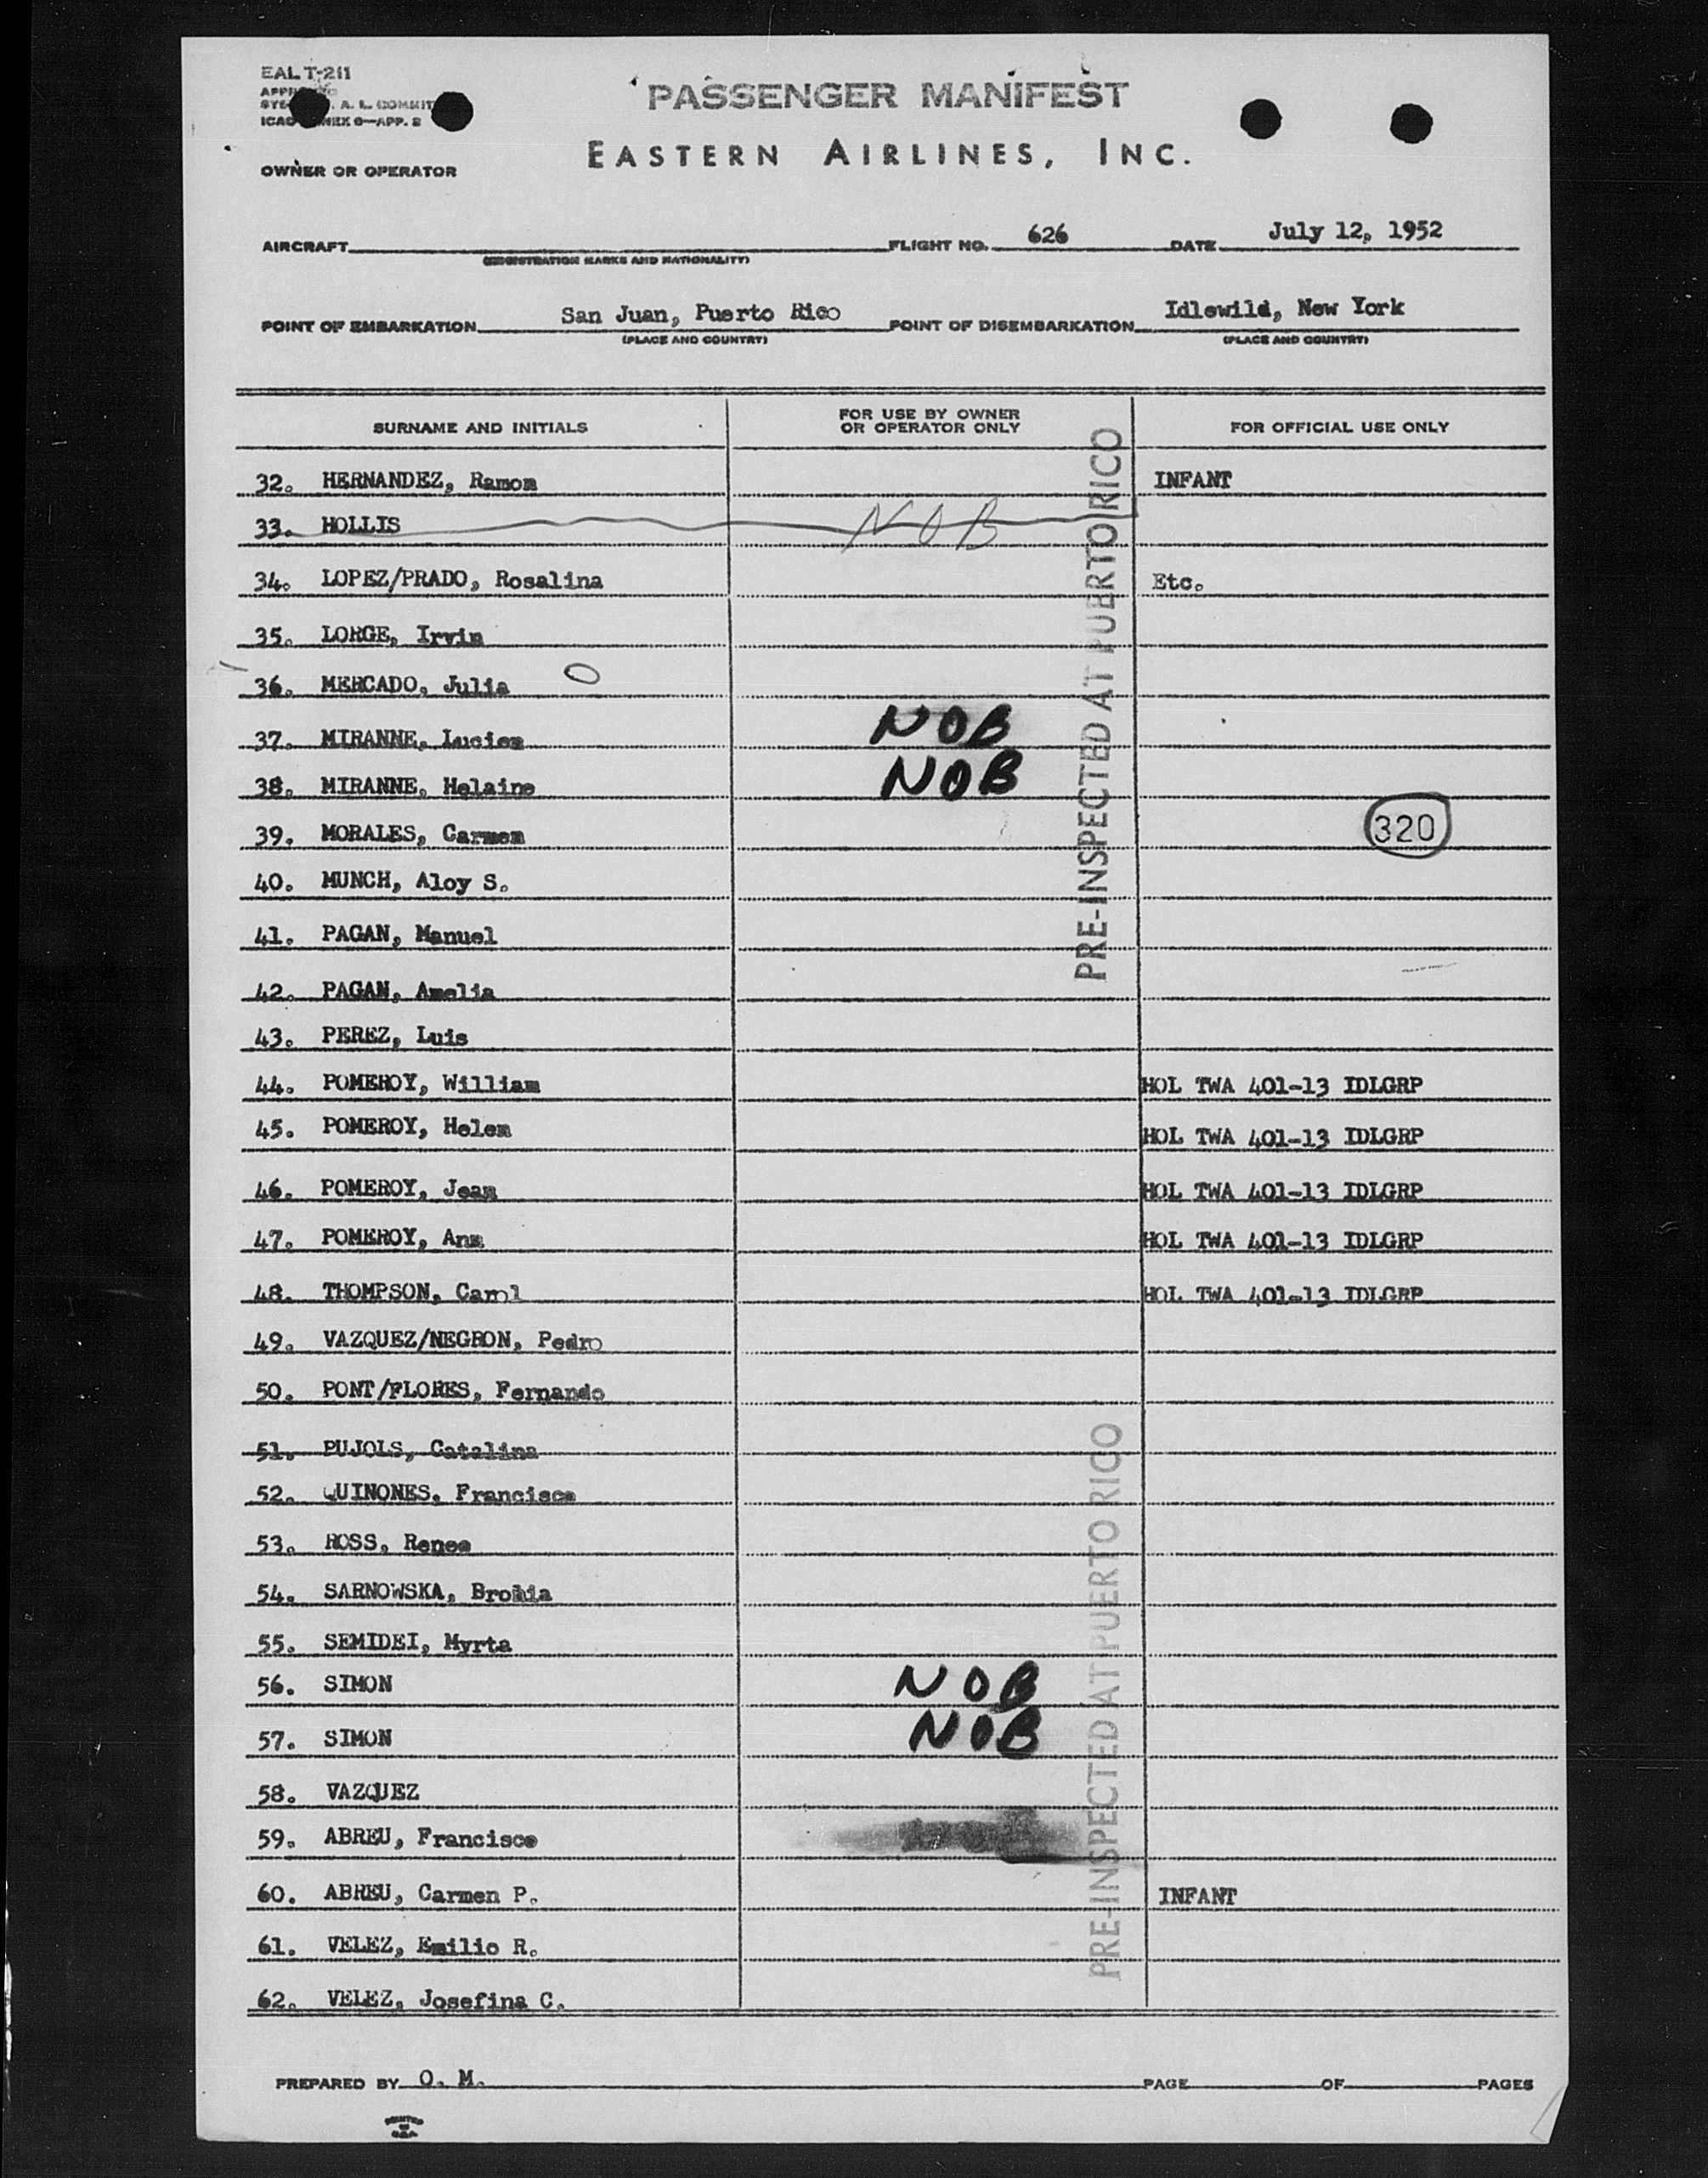 EAL T-211
PASSENGER MANIFEST
A. L. COMMIT
ICAO ANNEX 9—APP. 2
EASTERN AIRLINES, INC.
OWNER OR OPERATOR
AIRCRAFT FLIGHT NO. 626 DATE July 12, 1952
(REGISTRATION MARKS AND NATIONALITY)
POINT OF EMBARKATION San Juan, Puerto Rico POINT OF DISEMBARKATION Idlewild, New York
(PLACE AND COUNTRY) (PLACE AND COUNTRY)
SURNAME AND INITIALS FOR USE BY OWNER OR OPERATOR ONLY FOR OFFICIAL USE ONLY
32. HERNANDEZ, Ramon INFANT
33. HOLLIS NOB
34. LOPEZ/PRADO, Rosalina Etc.
35. LORGE, Irvin
36. MERCADO, Julia O
37. MIRANNE, Lucien NOB
38. MIRANNE, Helaine NOB
39. MORALES, Carmen 320
40. MUNCH, Aloy S.
41. PAGAN, Manuel
PRE-INSPECTED AT PUERTO RICO
42. PAGAN, Amelia
43. PEREZ, Luis
44. POMEROY, William HOL TWA 401-13 IDLGRP
45. POMEROY, Helen HOL TWA 401-13 IDLGRP
46. POMEROY, Jean HOL TWA 401-13 IDLGRP
47. POMEROY, Ann HOL TWA 401-13 IDLGRP
48. THOMPSON, Carol HOL TWA 401-13 IDLGRP
49. VAZQUEZ/NEGRON, Pedro
50. PONT/FLORES, Fernando
51. PUJOLS, Catalina
52. QUINONES, Francisco
53. ROSS, Renee
54. SARNOWSKA, Bronia
55. SEMIDEI, Myrta
56. SIMON NOB
57. SIMON NOB
58. VAZQUEZ
59. ABREU, Francisco
60. ABREU, Carmen P. INFANT
61. VELEZ, Emilio R.
PRE-INSPECTED AT PUERTO RICO
62. VELEZ, Josefina C.
PREPARED BY O. M. PAGE OF PAGES
PRINTED IN U.S.A.